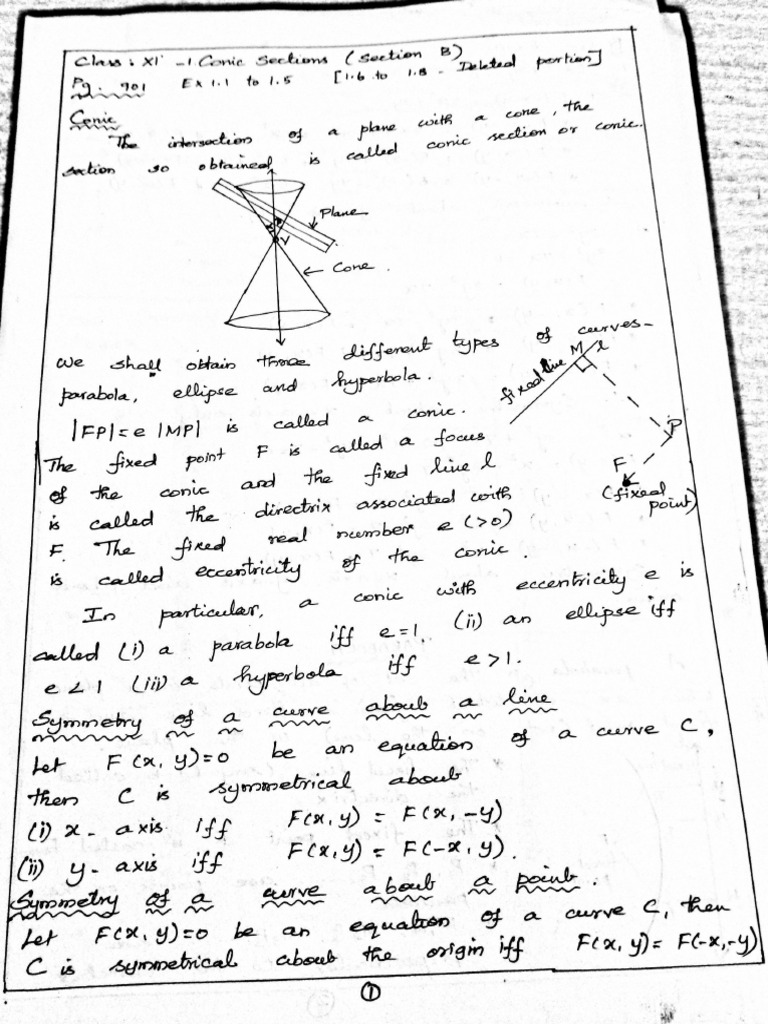 Class : XI - 1. Conic Sections (Section B)
Pg. 701 Ex 1.1 to 1.5 [1.6 to 1.8 - Deleted portion]
Conic
The intersection of a plane with a cone, the
section so obtained is called conic section or conic.
Plane
V
Cone
We shall obtain three different types of curves-
parabola, ellipse and hyperbola.
fixed line M l
|FP| = e |MP| is called a conic.
P
The fixed point F is called a focus
F
of the conic and the fixed line l
(fixed point)
is called the directrix associated with
F. The fixed real number e (>0)
is called eccentricity of the conic.
In particular, a conic with eccentricity e is
called (i) a parabola iff e=1, (ii) an ellipse iff
e < 1 (iii) a hyperbola iff e > 1.
Symmetry of a curve about a line
Let F(x, y)=0 be an equation of a curve C,
then C is symmetrical about
(i) x- axis iff F(x,y) = F(x,-y)
(ii) y- axis iff F(x,y) = F(-x, y).
Symmetry of a curve about a point.
Let F(x, y)=0 be an equation of a curve C, then
C is symmetrical about the origin iff F(x, y)= F(-x,-y)
1